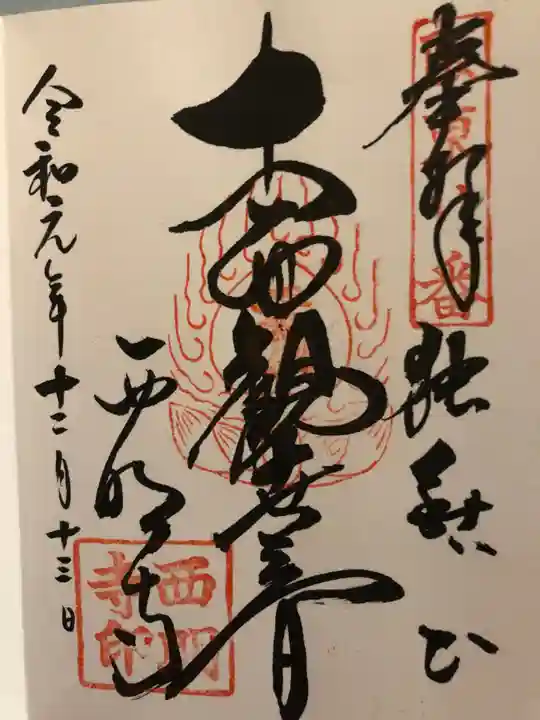 奉拝
縁結び
十一面観世音
西明寺
令和元年十二月十三日
西明寺印
番